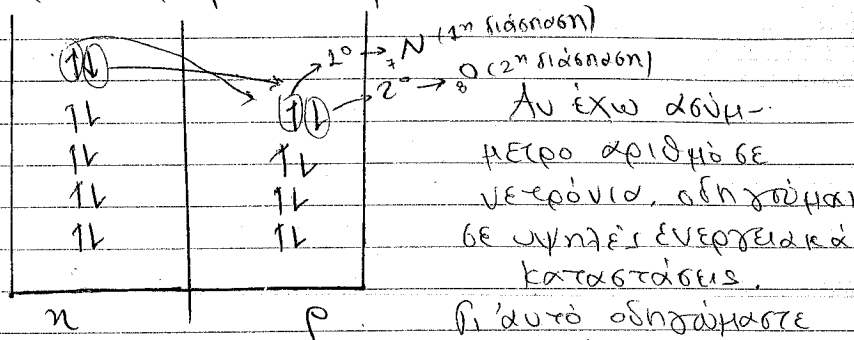 1º → ₇N (1η διάσπαση)
2º → ₈O (2η διάσπαση)
Αν έχω ασύμ-
μετρο αριθμό σε
νετρόνια, οδηγούμαι
σε υψηλές ένεργειακά
καταστάσεις.
Γι 'αυτό οδηγώμαστε
n p